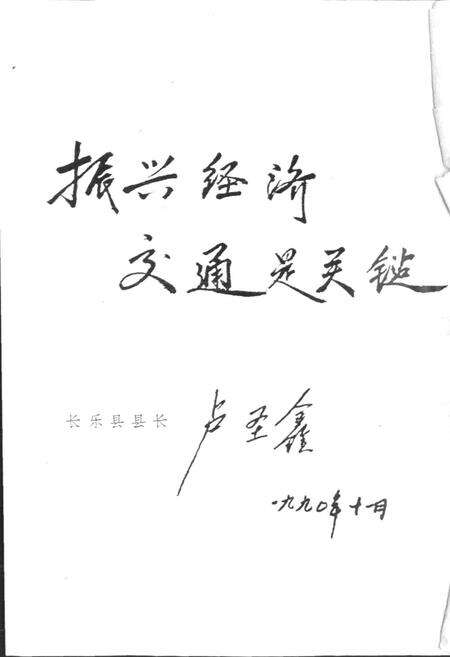 振兴经济
交通是关键
长乐县县长 卢圣鑫
一九九〇年十月